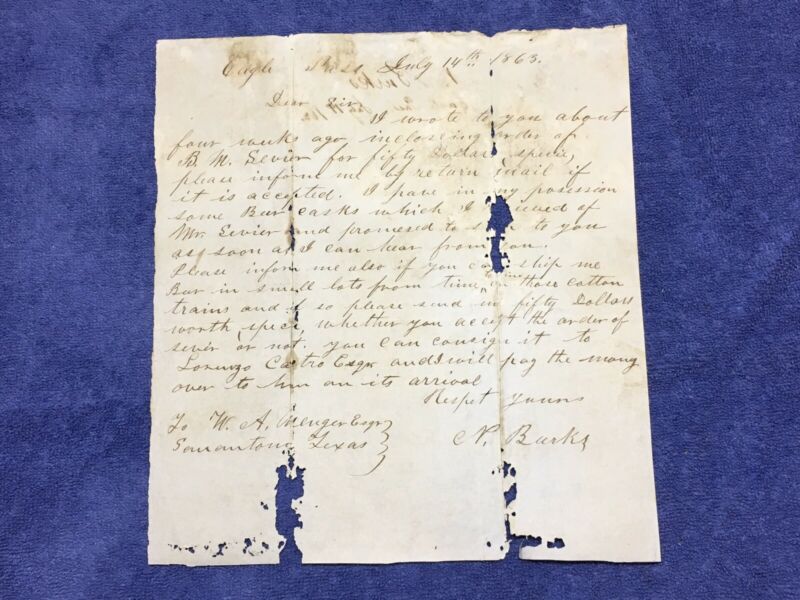 Eagle Pass July 14th 1863.
Dear Sir
I wrote to you about
four weeks ago inclosing order of
B. M. Sevier for fifty Dollars specie,
please inform me by return mail if
it is accepted. I have in my posession
some Beer casks which I of
Mr. Sevier and promised to to you
as soon as I can hear from you.
Please inform me also if you can ship me
Beer in small lots from time to time on those cotton
trains and if so please send me fifty Dollars
worth specie, whether you accept the order of
sevier or not. you can consign it to
Lorenzo Castro Esqr and I will pay the mony
over to him on its arrival
Respet yours
To W. A. Menger Esqr
Sanantonio Texas
N. Burks